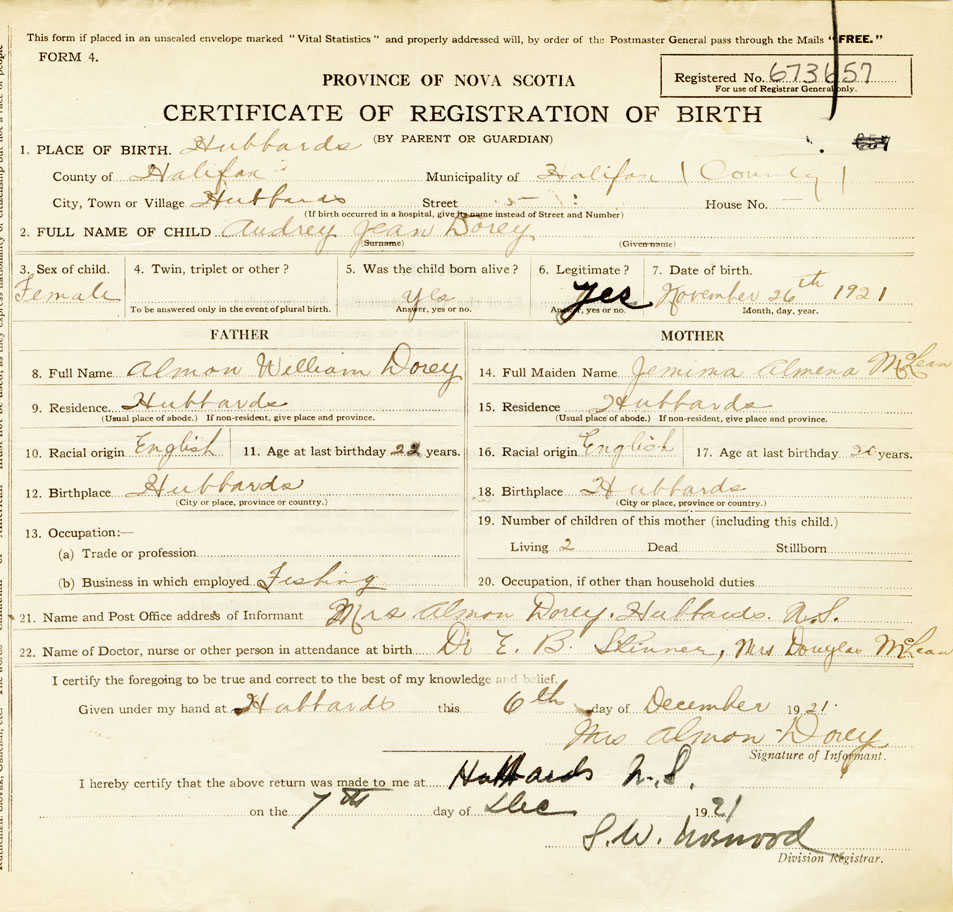 This form if placed in an unsealed envelope marked "Vital Statistics" and properly addressed will, by order of the Postmaster General pass through the Mails "FREE."
FORM 4.
PROVINCE OF NOVA SCOTIA
Registered No. 673657
For use of Registrar General only.
CERTIFICATE OF REGISTRATION OF BIRTH
(BY PARENT OR GUARDIAN)
1. PLACE OF BIRTH. Hubbards
County of Halifax Municipality of Halifax (County)
City, Town or Village Hubbards Street House No. —
(If birth occurred in a hospital, give its name instead of Street and Number)
2. FULL NAME OF CHILD Audrey Jean Dorey
(Surname) (Given name)
3. Sex of child. 4. Twin, triplet or other? 5. Was the child born alive? 6. Legitimate? 7. Date of birth.
Female Yes yes November 26th 1921
To be answered only in the event of plural birth. Answer, yes or no. Answer, yes or no. Month, day, year.
FATHER MOTHER
8. Full Name Almon William Dorey 14. Full Maiden Name Jemima Almena McLean
9. Residence. Hubbards 15. Residence Hubbards
(Usual place of abode.) If non-resident, give place and province. (Usual place of abode.) If non-resident, give place and province.
10. Racial origin English 11. Age at last birthday 22 years. 16. Racial origin English 17. Age at last birthday 20 years.
12. Birthplace Hubbards 18. Birthplace Hubbards
(City or place, province or country.) (City or place, province or country.)
13. Occupation:— 19. Number of children of this mother (including this child.)
(a) Trade or profession Living 2 Dead Stillborn
(b) Business in which employed Fishing 20. Occupation, if other than household duties
21. Name and Post Office address of Informant Mrs Almon Dorey. Hubbards. N.S.
22. Name of Doctor, nurse or other person in attendance at birth Dr E. B. Skinner, Mrs Douglas McLean
I certify the foregoing to be true and correct to the best of my knowledge and belief.
Given under my hand at Hubbards this 6th day of December 1921.
Mrs Almon Dorey
Signature of Informant.
I hereby certify that the above return was made to me at Hubbards N.S.
on the 7th day of Dec 1921
S. W. Norwood
Division Registrar.